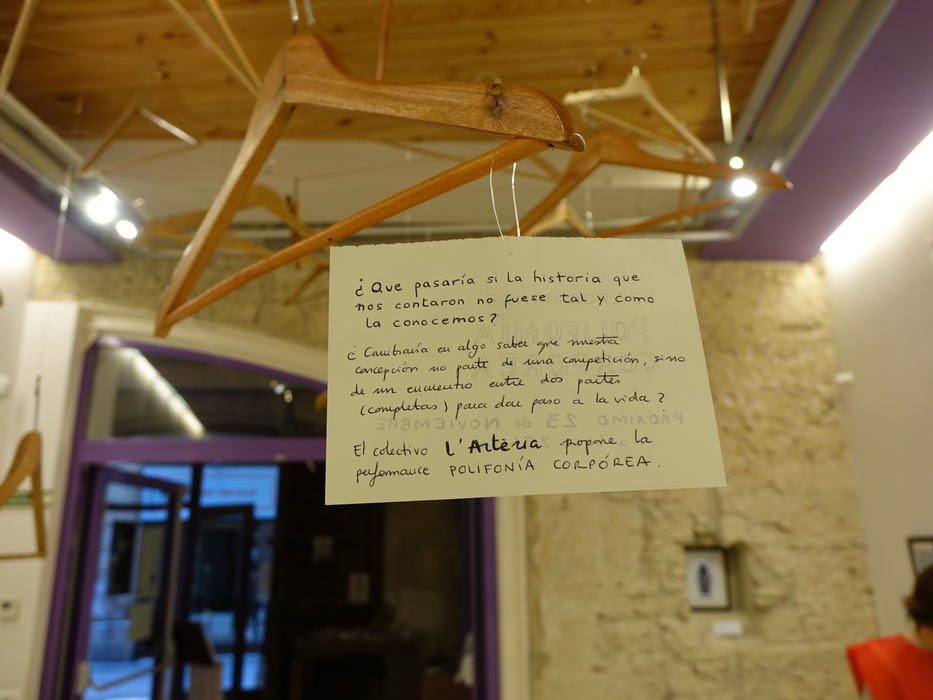 ¿Que pasaría si la historia que
nos contaron no fuese tal y como
la conocemos?
¿Cambiaría en algo saber que nuestra
concepción no parte de una competición, sino
de un encuentro entre dos partes
(completas) para dar paso a la vida?
El colectivo L'Artèria propone la
performance POLIFONÍA CORPÓREA.
POLIFONÍA
PRÓXIMO 25 de NOVIEMBRE